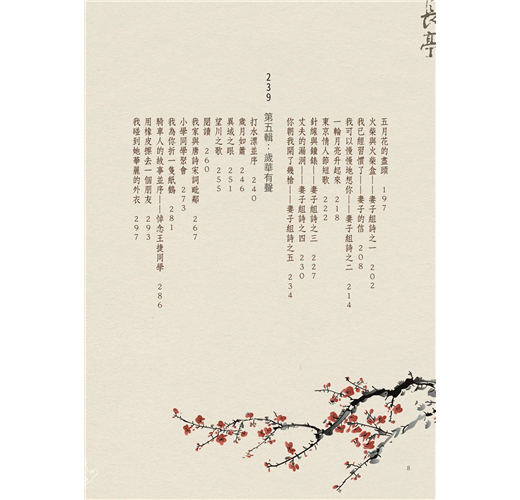 長亭
五月花的盡頭 197
火柴與火柴盒——妻子組詩之一 202
我已經習慣了——妻子的信 208
我可以慢慢地想你——妻子組詩之二 214
一輪月亮升起來 218
東京情人節短歌 222
針線與鐘錶——妻子組詩之三 227
丈夫的漏洞——妻子組詩之四 230
你朝我開了幾槍——妻子組詩之五 234
239 第五輯：歲華有聲
打水漂並序 240
歲月如簫 246
異域之眼 251
望川之歌 255
閱讀 260
我家與唐詩宋詞毗鄰 267
小學同學聚會 273
我為你折一隻紙鶴 281
騎車人的故事並序——悼念王捷同學 286
用橡皮擦去一個朋友 293
我碰到她華麗的外衣 297
8